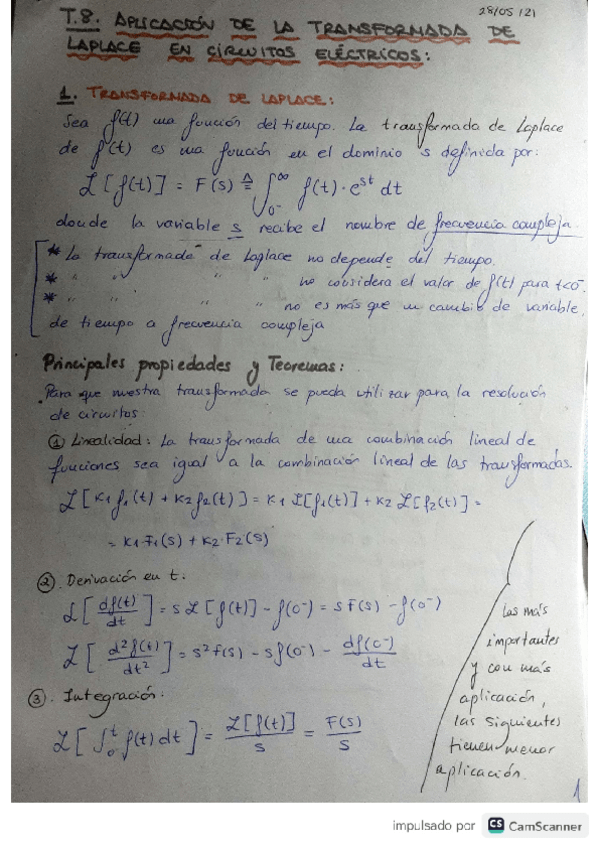 28/05/21
T.8. APLICACIÓN DE LA TRANSFORMADA DE
LAPLACE EN CIRCUITOS ELÉCTRICOS:
1. TRANSFORMADA DE LAPLACE:
Sea f(t) una función del tiempo. La transformada de Laplace
de f(t) es una función en el dominio s definida por:
ℒ[f(t)] = F(s) ≜ ∫₀₋^∞ f(t)·e^st dt
donde la variable s recibe el nombre de frecuencia compleja.
* La transformada de Laplace no depende del tiempo.
* " " " " no considera el valor de f(t) para t<0⁻.
* " " " " no es más que un cambio de variable,
de tiempo a frecuencia compleja
Principales propiedades y Teoremas:
Para que nuestra transformada se pueda utilizar para la resolución
de circuitos:
① Linealidad: La transformada de una combinación lineal de
funciones sea igual a la combinación lineal de las transformadas.
ℒ[K1 f1(t) + K2 f2(t)] = K1 ℒ[f1(t)] + K2 ℒ[f2(t)] =
= K1·F1(s) + K2·F2(s)
②. Derivación en t:
ℒ[df(t)/dt] = s ℒ[f(t)] - f(0⁻) = s F(s) - f(0⁻)
ℒ[d²f(t)/dt²] = s² F(s) - s f(0⁻) - df(0⁻)/dt
③. Integración:
ℒ[∫₀^t f(t) dt] = ℒ[f(t)]/s = F(s)/s
Las más
importantes
y con más
aplicación,
las siguientes
tienen menor
aplicación.
1
impulsado por CS CamScanner